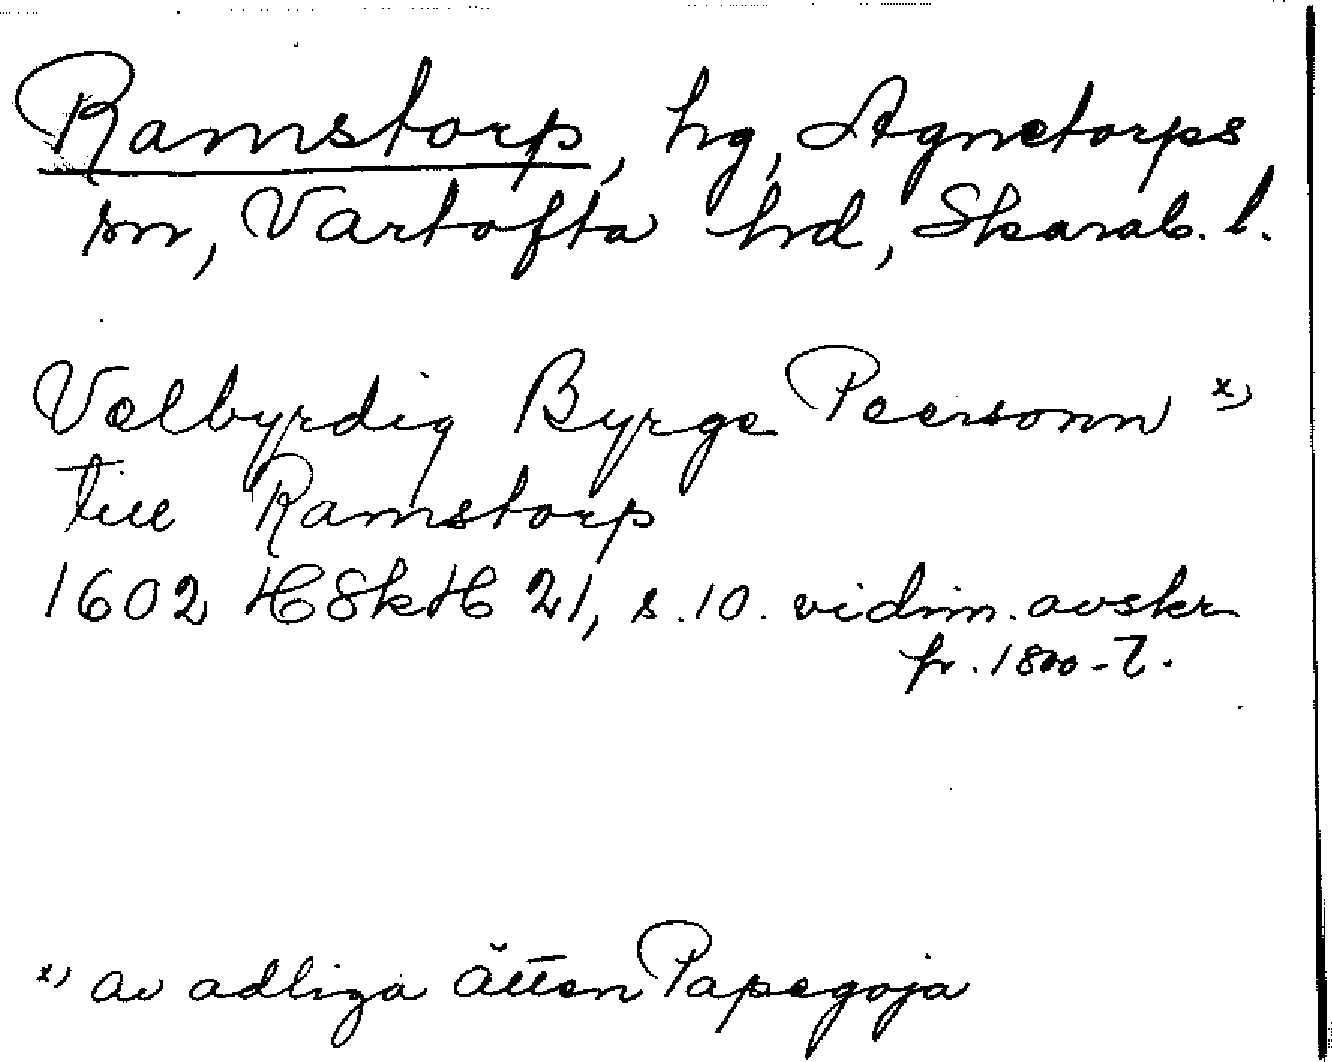 Ramstorp, hg, Agnetorps
sn, Vartofta hd, Skarab. l.
Velbyrdig Byrge Peersonn x)
till Ramstorp
1602 HSkH 21, s. 10. vidim. avskr
fr. 1800-t.
x) av adliga ätten Papegoja